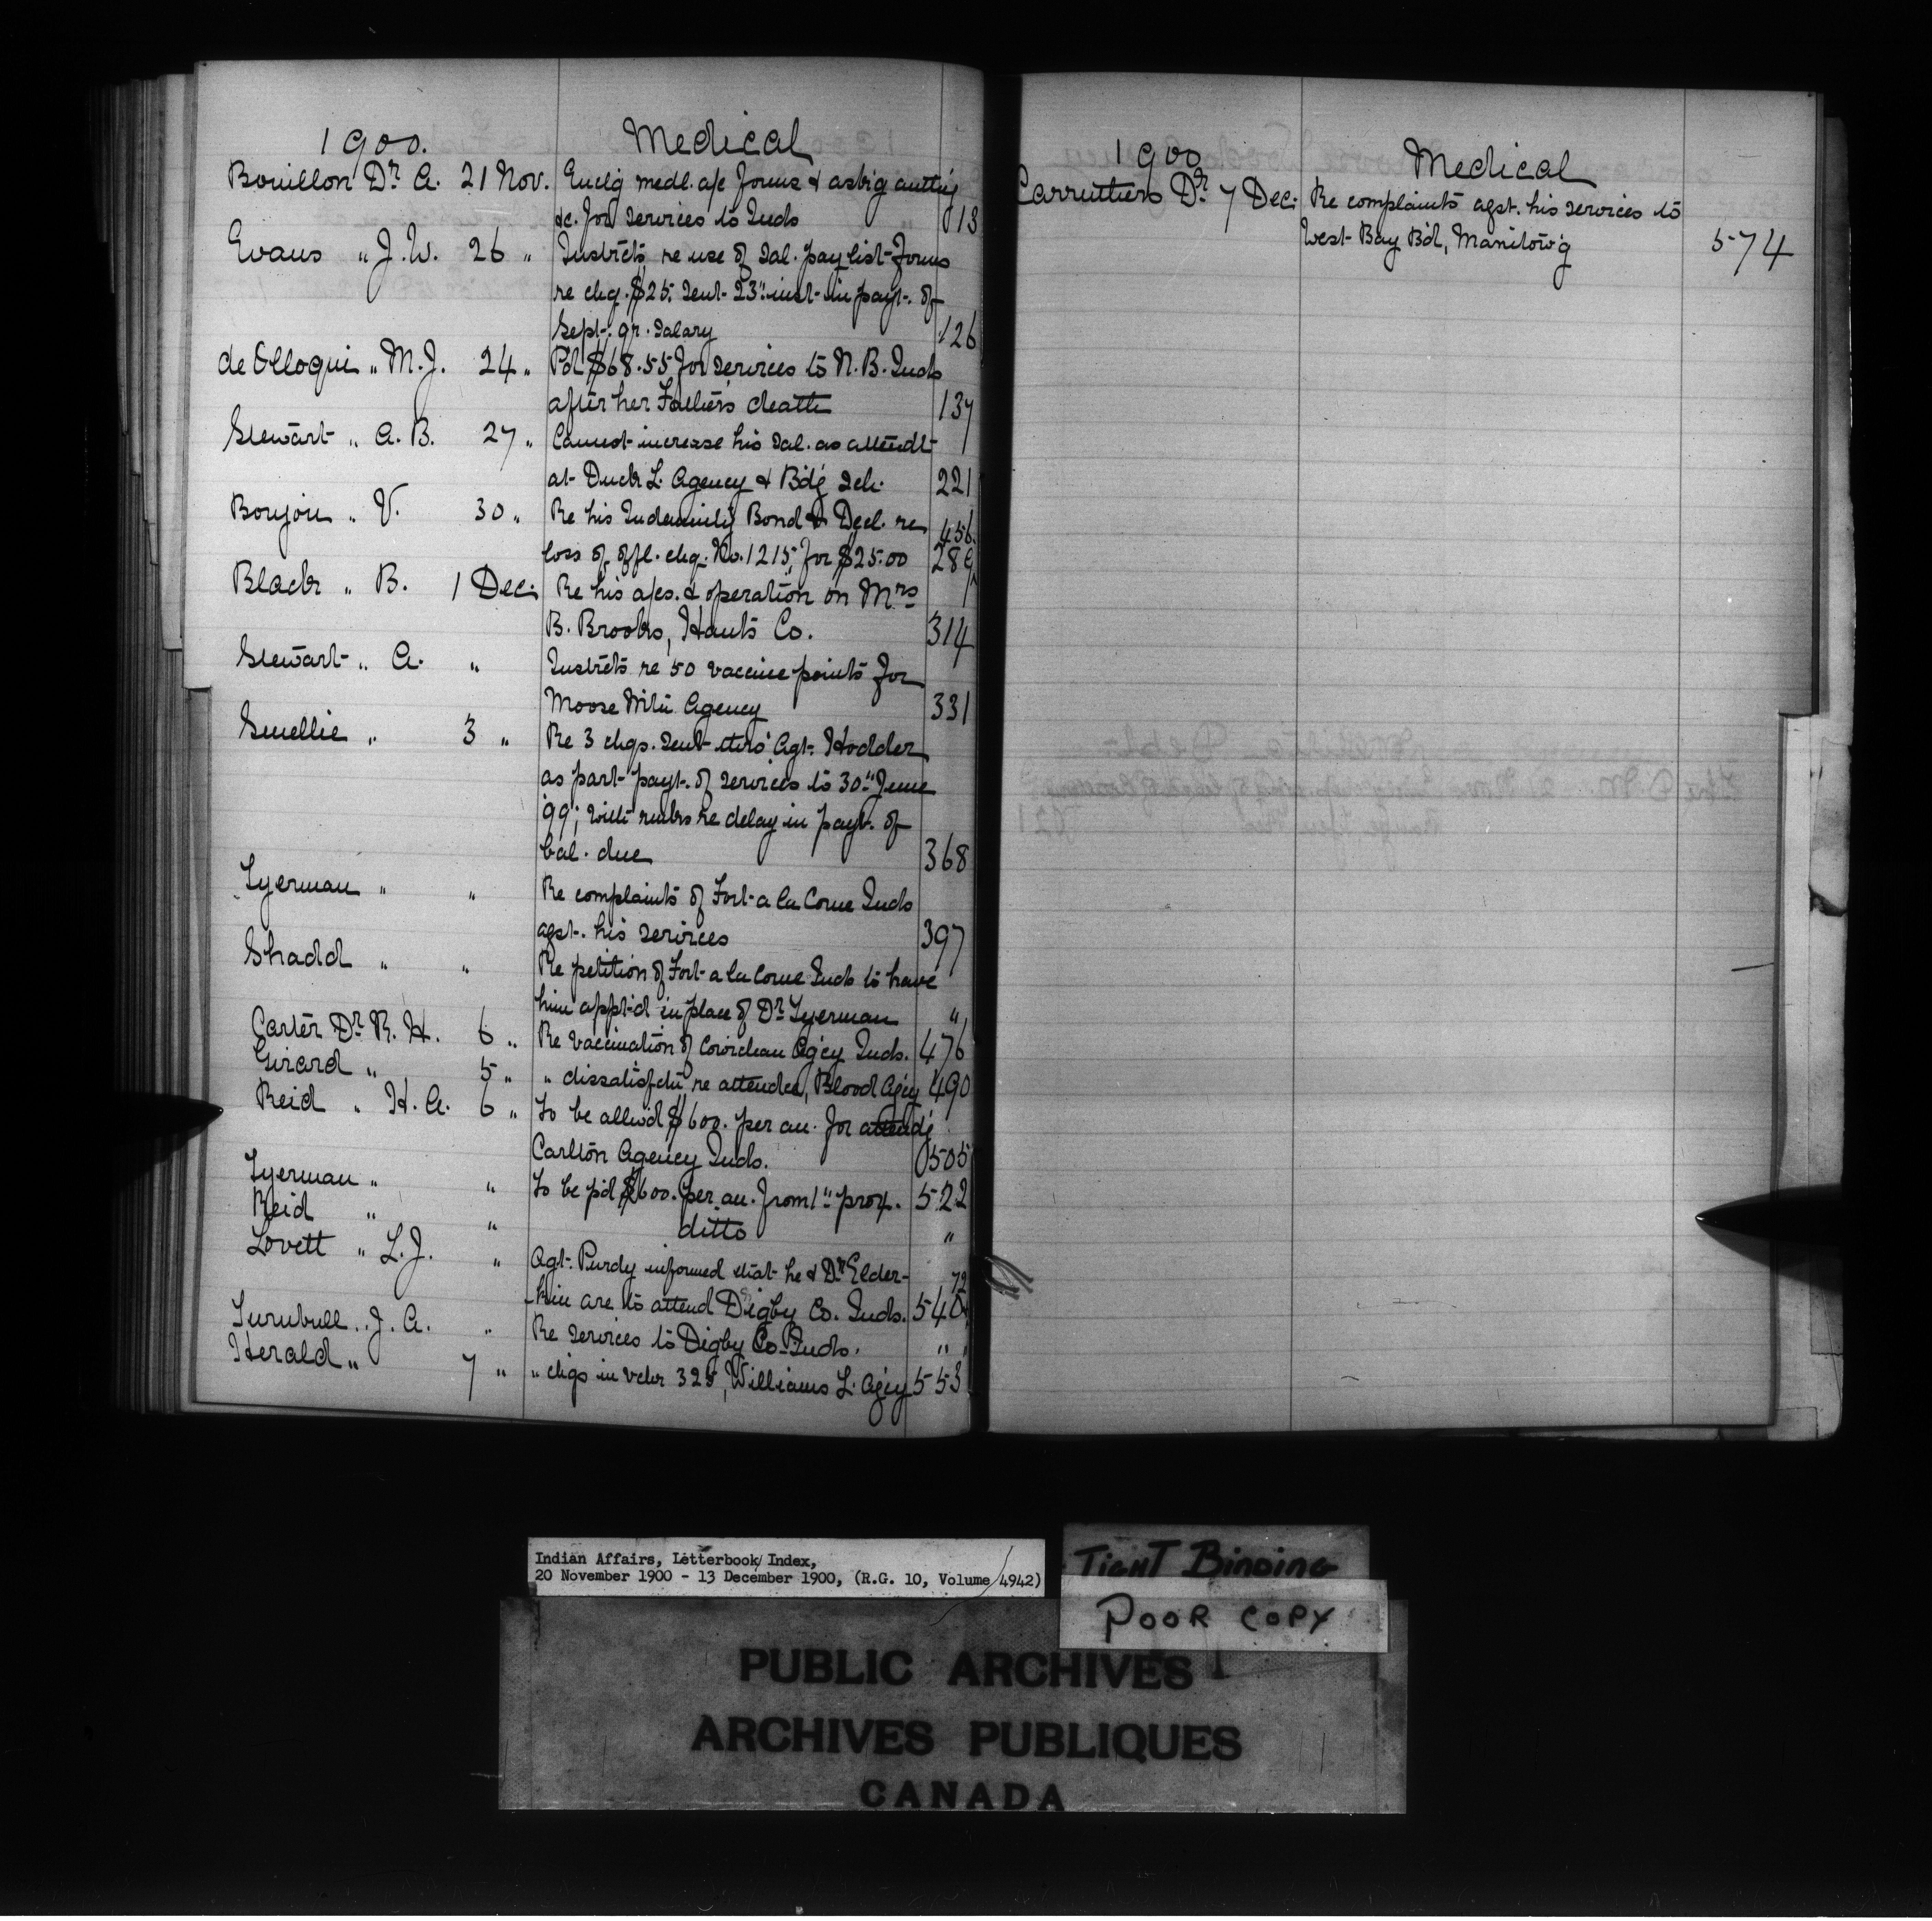 1900. Medical
Bouillon Dr. A. 21 Nov. Enclg medl. a/c forms & askig authy
&c. for services to Inds 013
Evans " J.W. 26 " Instrcts re use of sal. pay list forms
re chq. $25. sent 23" inst in payt. of
Sept. qr. salary 126
de Olloqui " M.J. 24 " Pd $68.55 for services to N.B. Inds
after her Father's death 137
Stewart " A.B. 27 " Cannot increase his sal. as attendt
at Duck L. Agency & Bdg sch. 221
Boujou " V. 30 " Re his Indemnity Bond & Decl. re 456
loss of offl. chq. No. 1215, for $25.00 289
Black " B. 1 Dec. Re his a/cs. & operation on Mrs
B. Brooks, Hants Co. 314
Stewart " A. " Instrcts re 50 vaccine points for
Moose Mtn Agency 331
Smellie " 3 " Re 3 chqs. sent thro' Agt. Hodder
as part payt. of services to 30" June
'99; with rmks re delay in payt. of
bal. due 368
Tyerman " " Re complaints of Fort a la Corne Inds
agst. his services 397
Shadd " " Re petition of Fort a la Corne Inds to have
him apptd in place of Dr. Tyerman "
Carter Dr. R.H. 6 " Re vaccination of Cowichan Agcy Inds. 476
Girard " 5 " " dissatisfctn re attendce, Blood Agcy 490
Reid " H.A. 6 " To be allwd $600. per an. for attendg
Carlton Agency Inds. 505
Tyerman " " To be pd $600. per an. from 1" prox. 522
Reid " " ditto "
Lovett " L.J. " Agt. Purdy informed that he & Dr. Elder- 72
-kin are to attend Digby Co. Inds. 540
Turnbull " J.A. " Re services to Digby Co. Inds. "
Herald " 7 " " chqs in vchr 325, Williams L. Agcy 553
1900 Medical
Carruthers Dr. 7 Dec. Re complaints agst. his services to
West Bay Bd, Manitow'g 574
Indian Affairs, Letterbook/Index,
20 November 1900 - 13 December 1900, (R.G. 10, Volume 4942)
TIGHT BINDING
POOR COPY
PUBLIC ARCHIVES
ARCHIVES PUBLIQUES
CANADA